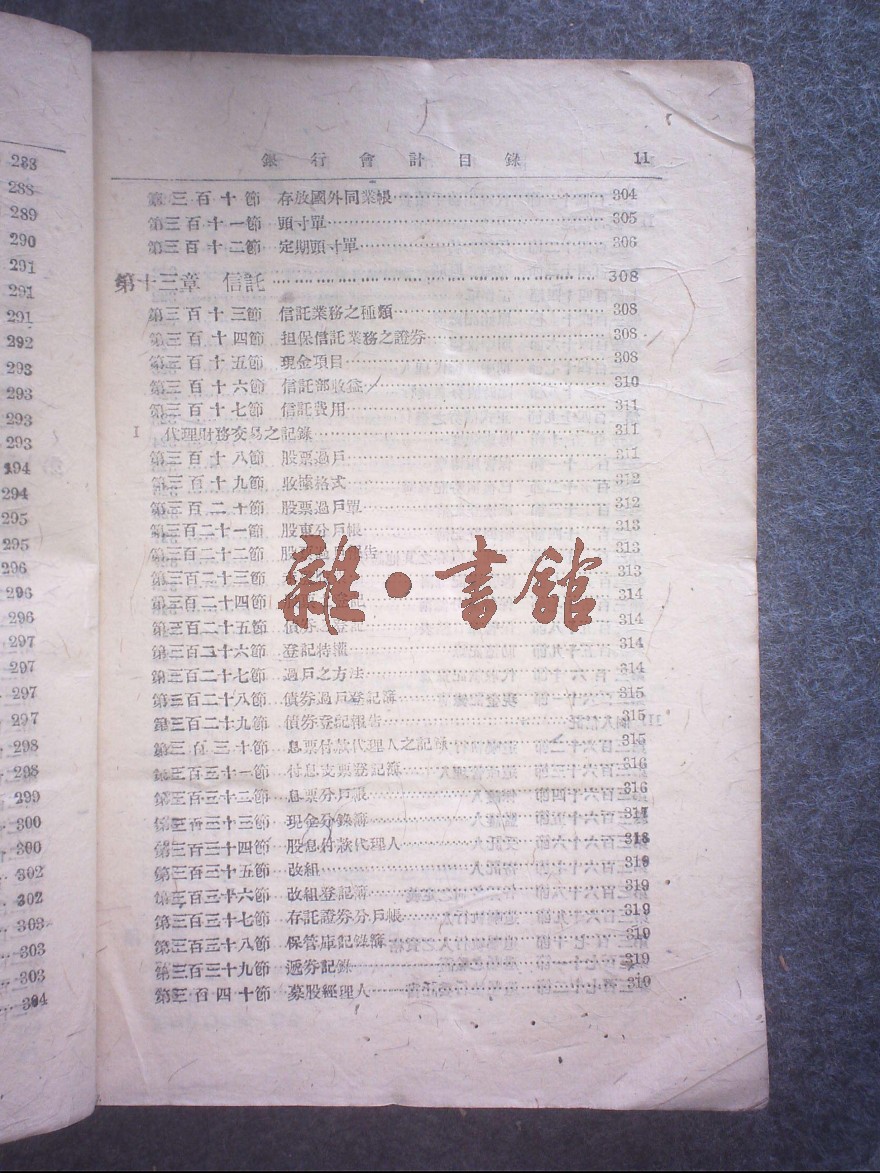 288
288
289
290
291
291
291
292
293
293
293
293
294
294
295
295
296
296
296
297
297
297
297
298
298
299
300
300
302
302
303
303
303
304
銀行會計目錄 11
第三百十節 存放國外同業帳 304
第三百十一節 頭寸單 305
第三百十二節 定期頭寸單 306
第十三章 信託 308
第三百十三節 信託業務之種類 308
第三百十四節 担保信託業務之證券 308
第三百十五節 現金項目 308
第三百十六節 信託部收益 310
第三百十七節 信託費用 311
I 代理財務交易之記錄 311
第三百十八節 股票過戶 311
第三百十九節 收據格式 312
第三百二十節 股票過戶單 312
第三百二十一節 股東分戶帳 313
第三百二十二節 股 告 313
第三百二十三節 313
第三百二十四節 記 314
第三百二十五節 債券之登記 314
第三百二十六節 登記特權 314
第三百二十七節 過戶之方法 314
第三百二十八節 債券過戶登記簿 315
第三百二十九節 債券登記報告 315
第三百三十節 息票付款代理人之記錄 315
第三百三十一節 付息支票登記簿 316
第三百三十二節 息票分戶帳 316
第三百三十三節 現金分錄簿 317
第三百三十四節 股息付款代理人 318
第三百三十五節 改組 319
第三百三十六節 改組登記簿 319
第三百三十七節 存託證券分戶帳 319
第三百三十八節 保管庫記錄簿 319
第三百三十九節 遞券記錄 319
第三百四十節 募股經理人 319
雜·書館